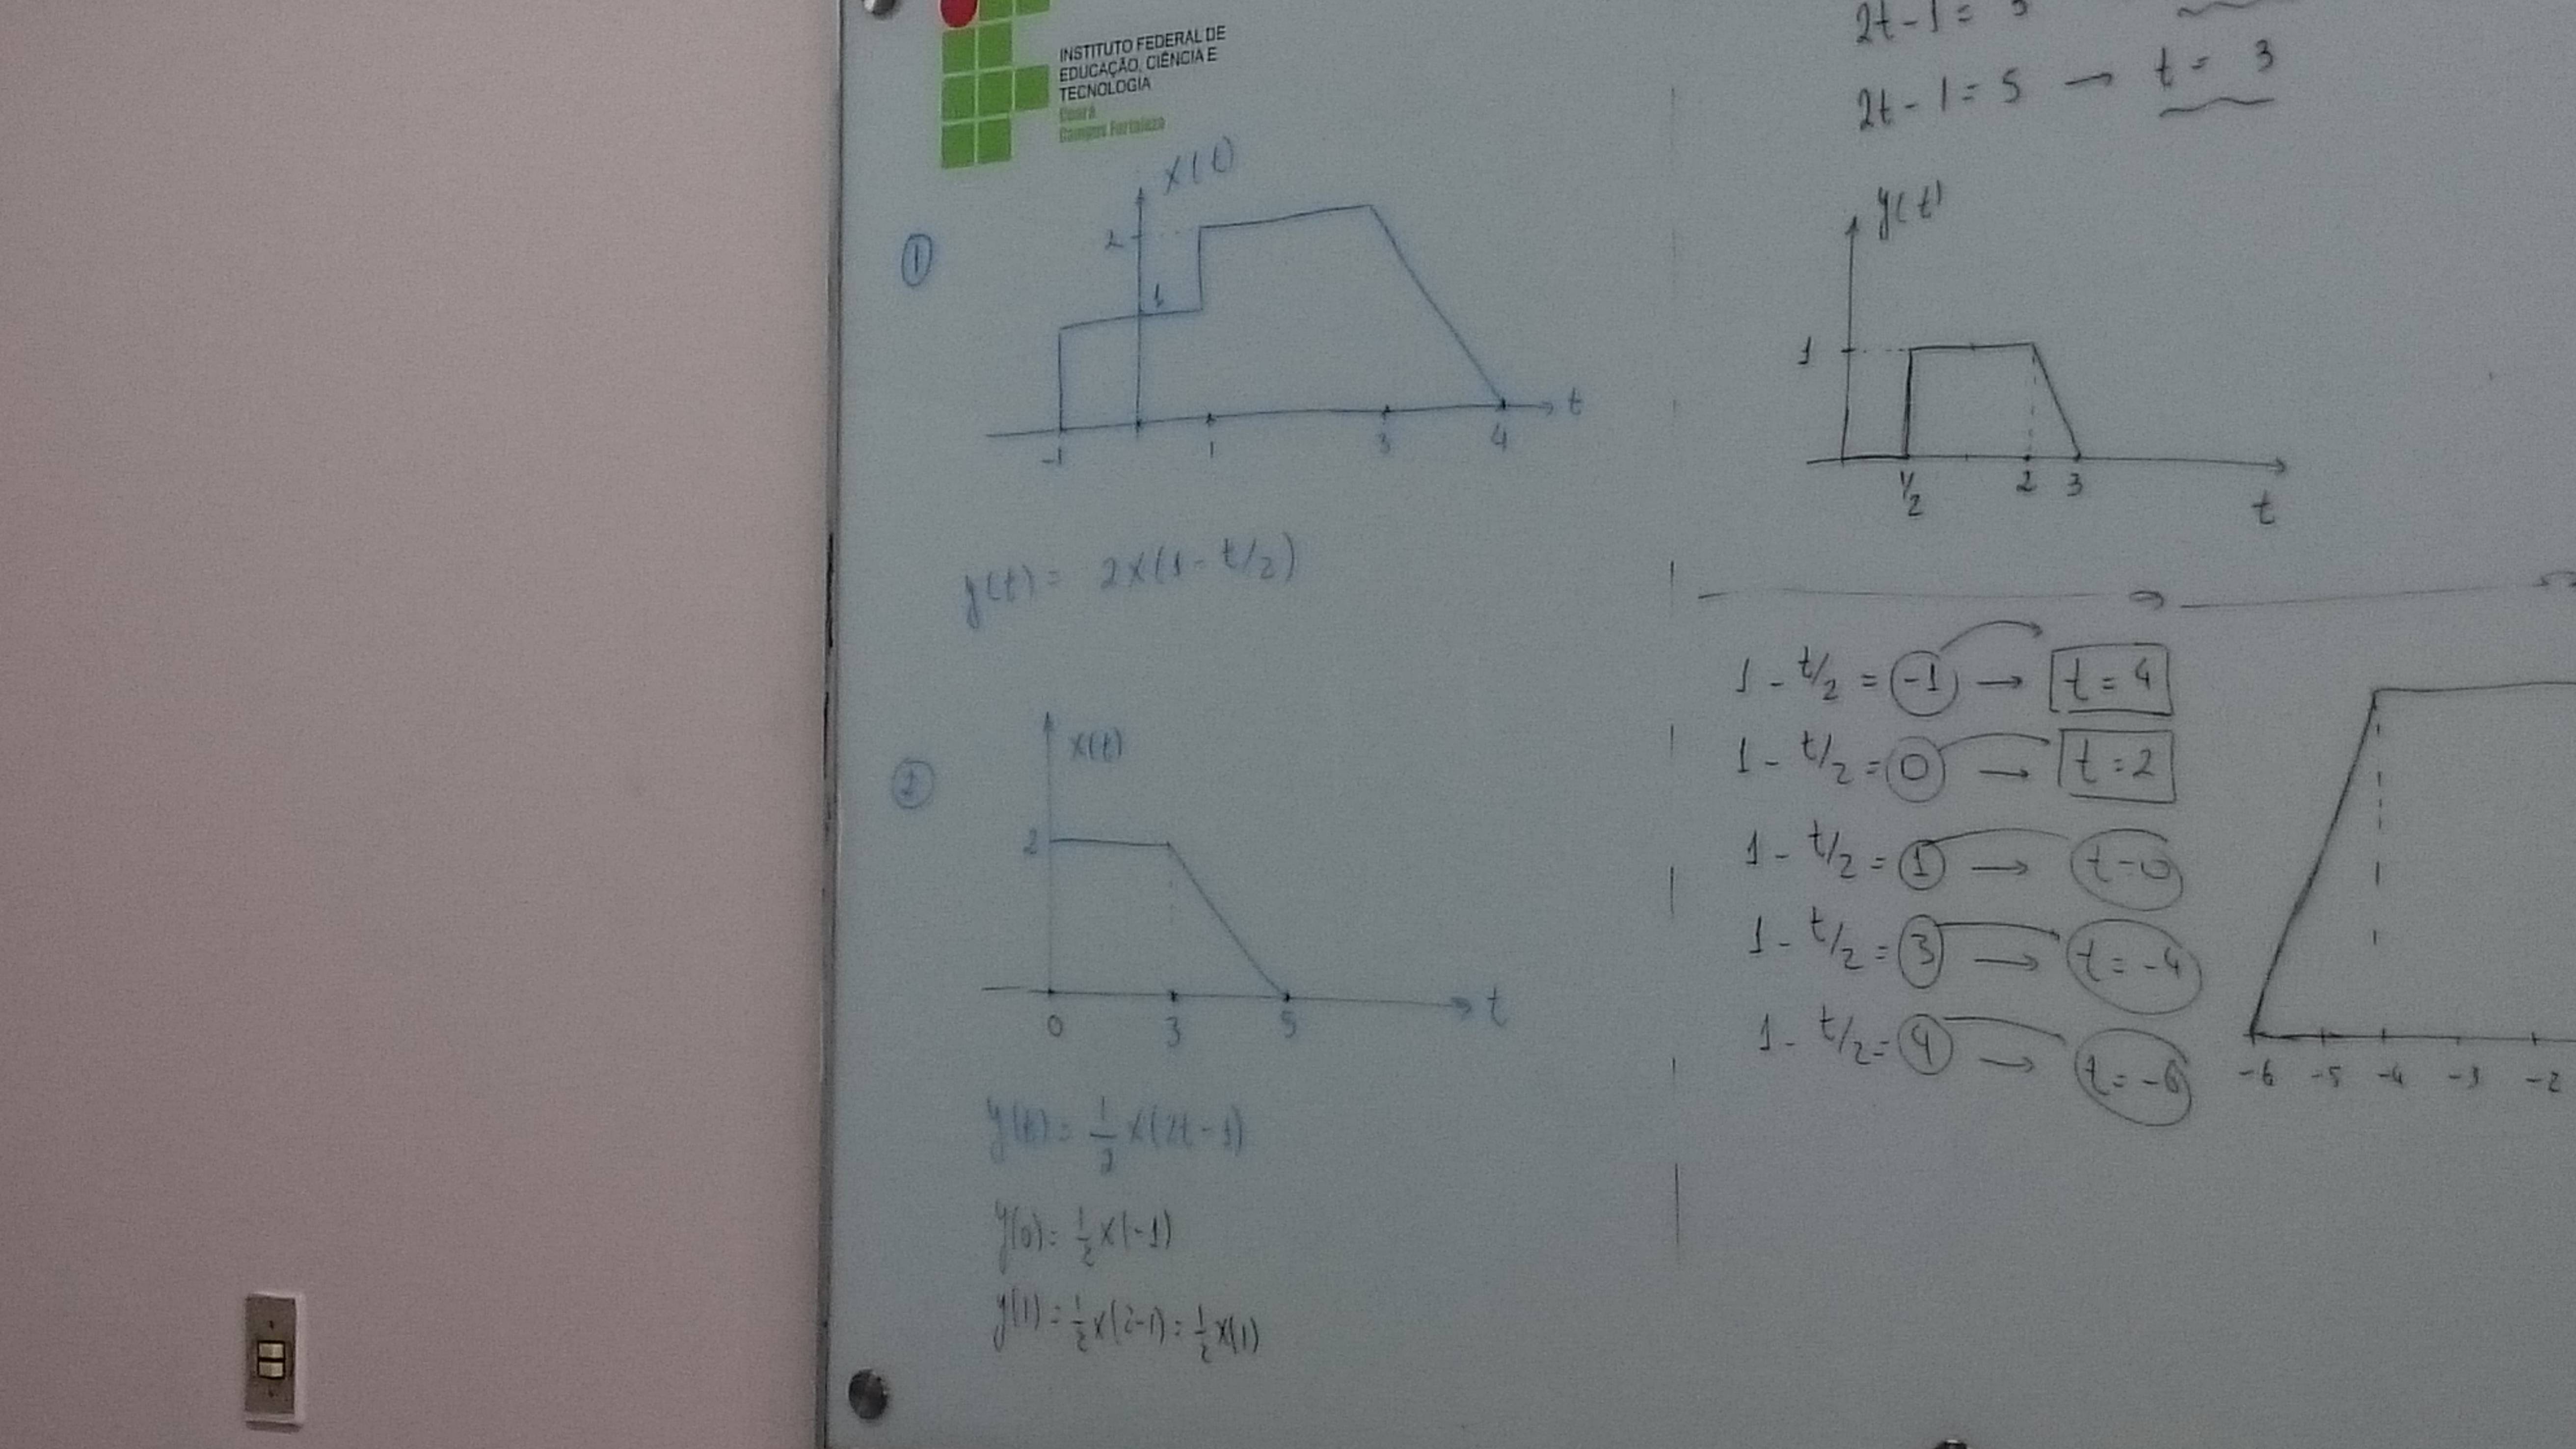 INSTITUTO FEDERAL DE
EDUCAÇÃO, CIÊNCIA E
TECNOLOGIA
Ceará
Campus Fortaleza
1
x(t)
2
1
-1 1 3 4
t
y(t) = 2x(1 - t/2)
2
x(t)
2
0 3 5
t
y(t) = 1/2 x(2t - 1)
y(0) = 1/2 x(-1)
y(1) = 1/2 x(2-1) = 1/2 x(1)
2t - 1 =
2t - 1 = 5 → t = 3
y(t)
1
1/2 2 3
t
1 - t/2 = -1 → t = 4
1 - t/2 = 0 → t = 2
1 - t/2 = 1 → t = 0
1 - t/2 = 3 → t = -4
1 - t/2 = 4 → t = -6
-6 -5 -4 -3 -2